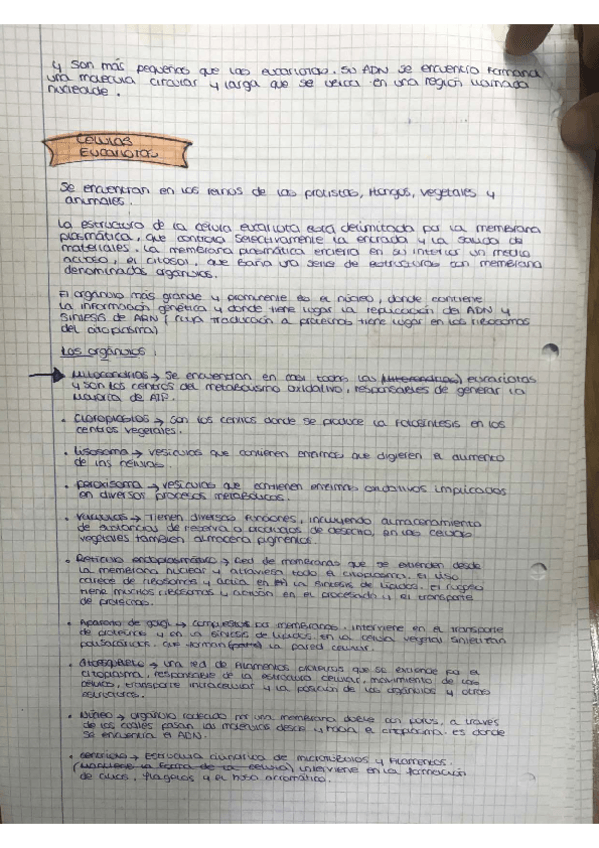 y son más pequeños que las eucariotas. Su ADN se encuentra formando
una molécula circular y larga que se ubica en una región llamada
nucleoide.
CELULAS
EUCARIOTAS
Se encuentran en los reinos de las protistas, Hongos, vegetales y
animales.
La estructura de la célula eucariota está delimitada por la membrana
plasmática, que controla selectivamente la entrada y la salida de
materiales. La membrana plasmática encierra en su interior un medio
acuoso, el citosol, que baña una serie de estructuras con membrana
denominados orgánulos.
El orgánulo más grande y prominente es el núcleo, donde contiene
la información genética y donde tiene lugar la replicación del ADN y
síntesis de ARN (cuya traducción a proteínas tiene lugar en los ribosomas
del citoplasma)
Los orgánulos:
Mitocondrias → Se encuentran en casi todas las (mitocondrias) eucariotas
y son los centros del metabolismo oxidativo, responsables de generar la
mayoría de ATP.
• Cloroplastos → Son los centros donde se produce la fotosíntesis en los
centros vegetales.
• Lisosoma → vesículas que contienen enzimas que digieren el alimento
de las células.
• peroxisoma → vesículas que contienen enzimas oxidativos implicados
en diversos procesos metabólicos.
• vacuolas → Tienen diversas funciones, incluyendo almacenamiento
de sustancias de reserva o productos de desecho, en las células
vegetales también almacena pigmentos.
• Retículo endoplasmático → Red de membranas que se extienden desde
la membrana nuclear y atraviesa todo el citoplasma. El liso
carece de ribosomas y actúa en la síntesis de lípidos. El rugoso
tiene muchos ribosomas y actúa en el procesado y el transporte
de proteínas.
• Aparato de golgi → compuestos por membranas. interviene en el transporte
de proteínas y en la síntesis de lípidos. en la célula vegetal sintetizan
polisacáridos que forman la pared celular.
• citoesqueleto → una red de filamentos proteicos que se extiende por el
citoplasma, responsable de la estructura celular, movimiento de las
células, transporte intracelular y la posición de los orgánulos y otras
estructuras.
• Núcleo → orgánulo rodeado por una membrana doble con poros, a través
de los cuales pasan las moléculas desde y hacia el citoplasma. es donde
se encuentra el ADN.
• centriolo → Estructura cilíndrica de microtúbulos y filamentos.
(mantiene la forma de la célula) interviene en la formación
de cilios, flagelos y el huso acromático.